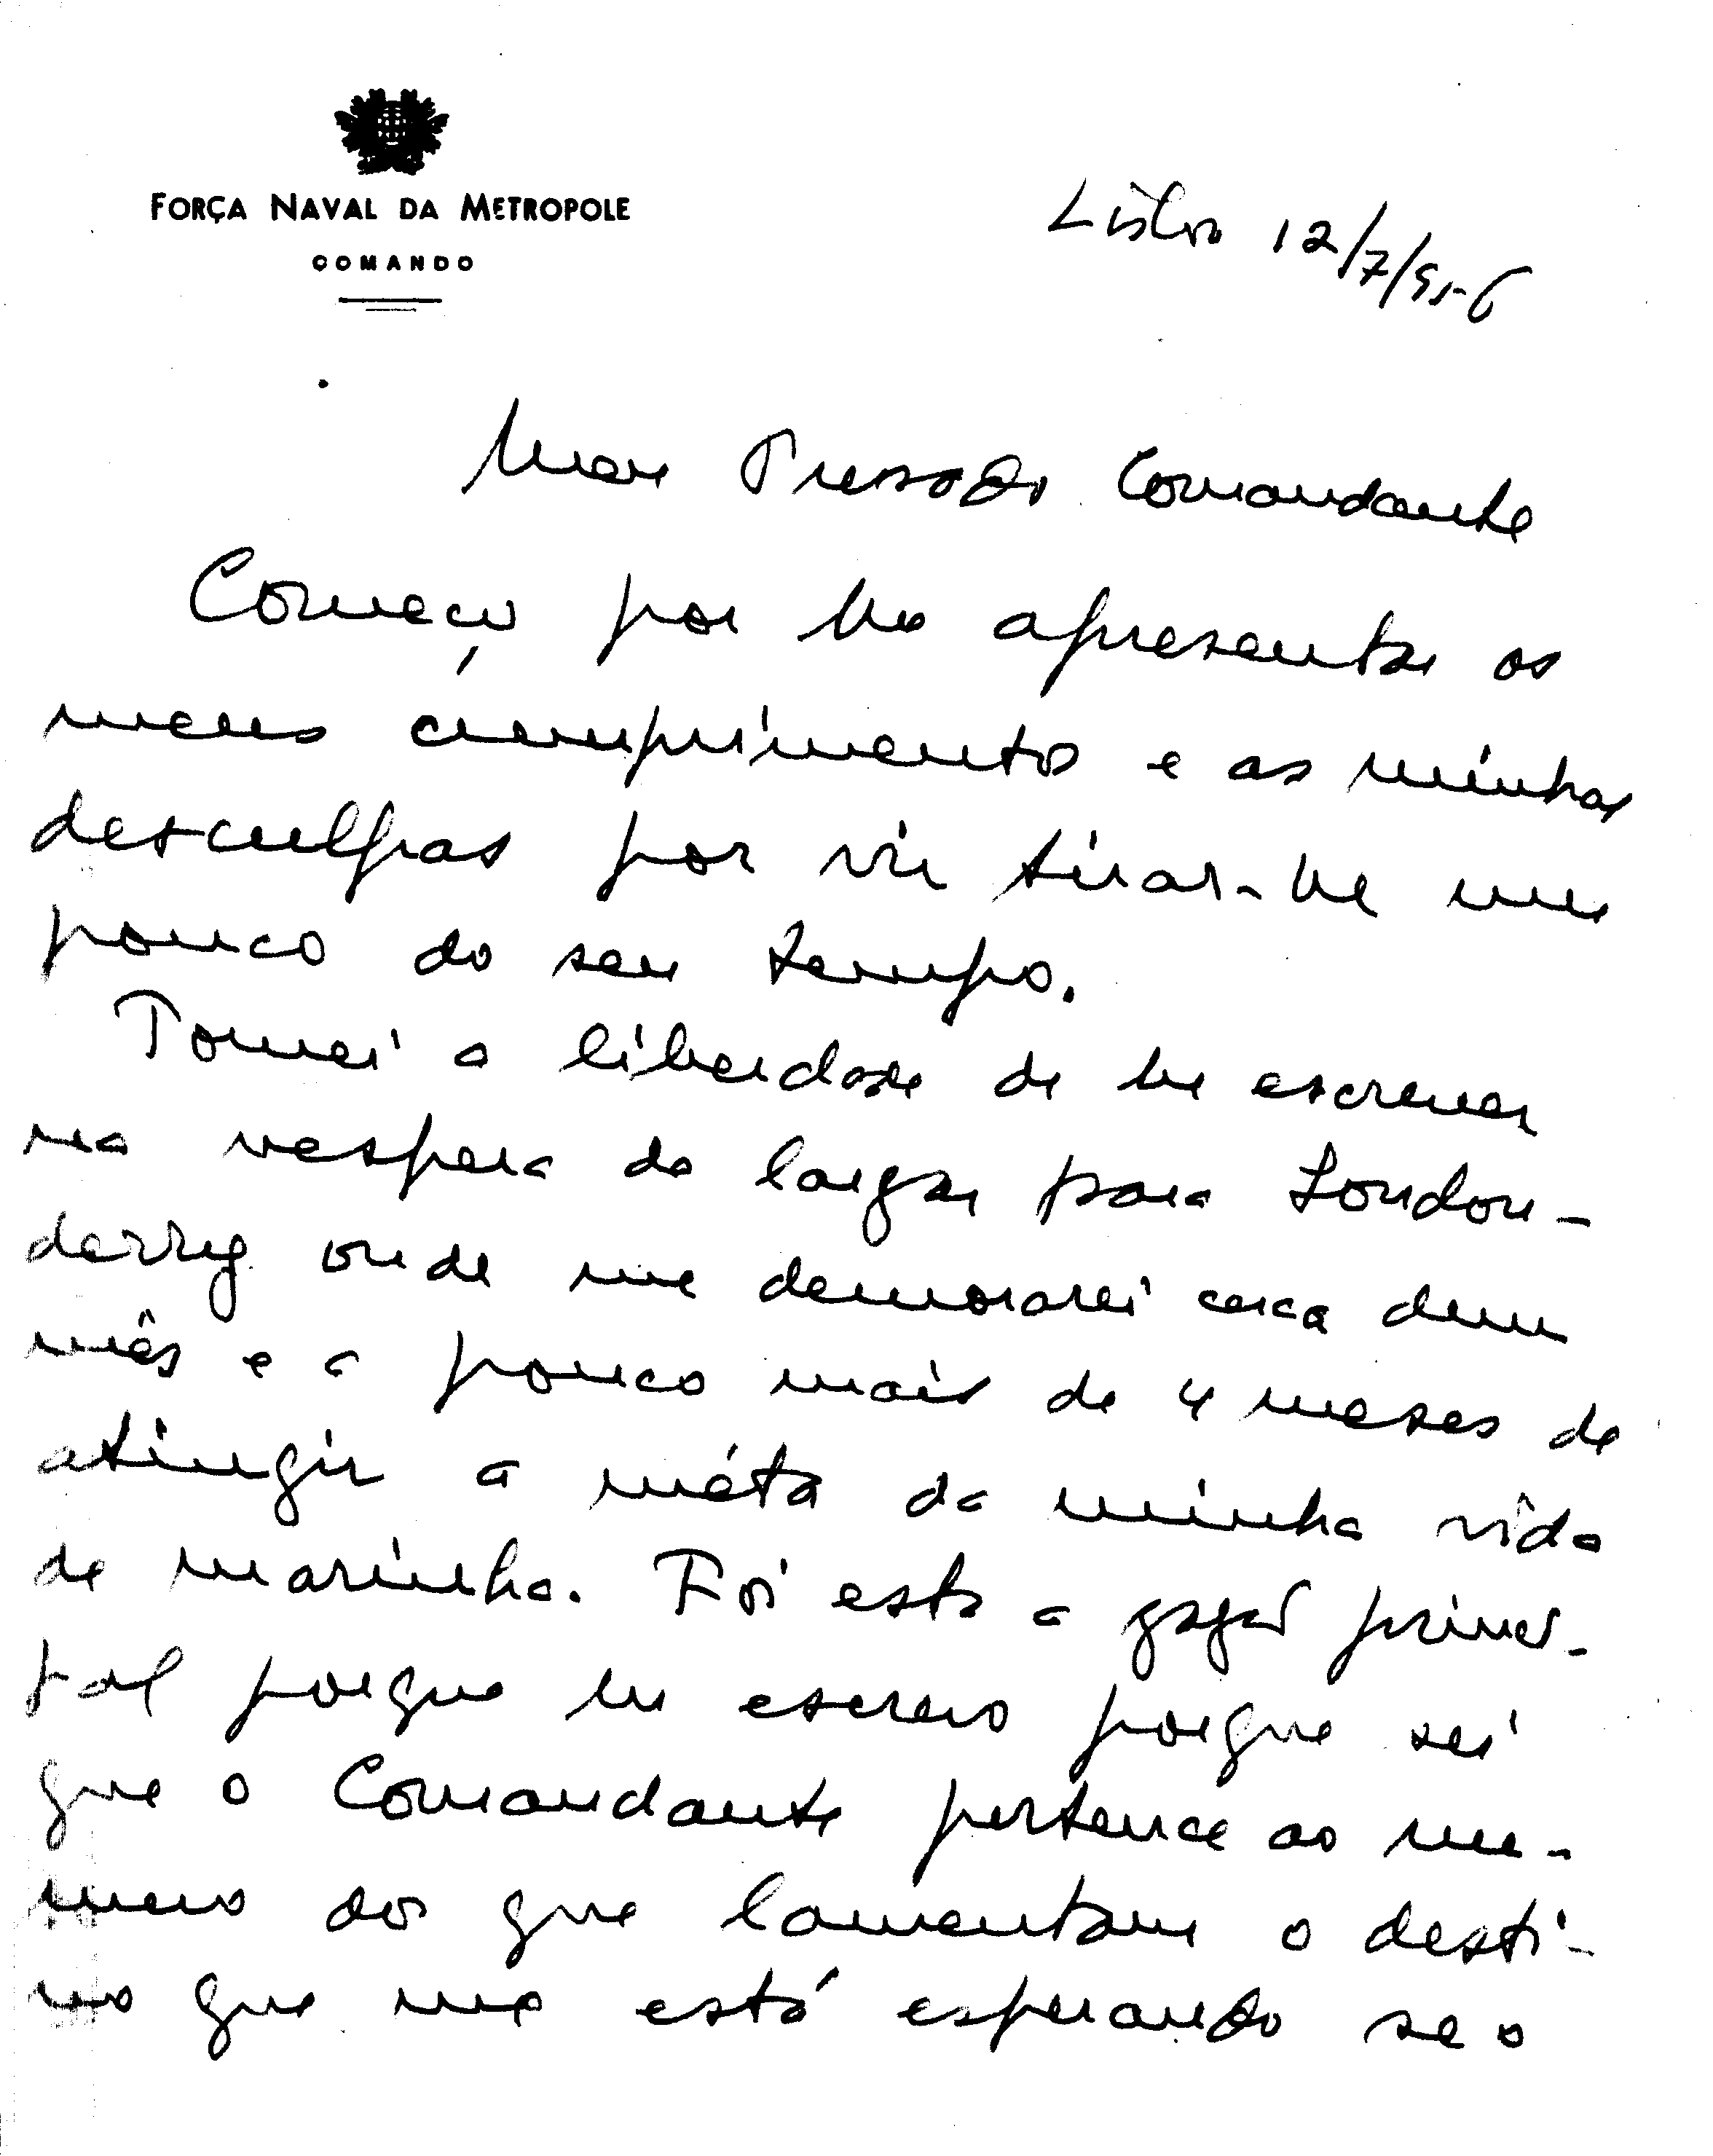 FORÇA NAVAL DA METROPOLE
COMANDO
Lisboa 12/7/956
Meu Presado Comandante
Começo por lhe apresentar os
meus cumprimentos e as minhas
desculpas por vir tirar-lhe um
pouco do seu tempo.
Tomei a liberdade de lhe escrever
na vespera de largar para London-
derry onde me demorarei cerca dum
mês e a pouco mais de 4 meses de
atingir a méta da minha vida
de marinha. Foi esta a razão princi-
pal porque lhe escrevo porque sei
que o Comandante pertence ao nu-
mero dos que lamentam o desti-
no que me está esperando se o